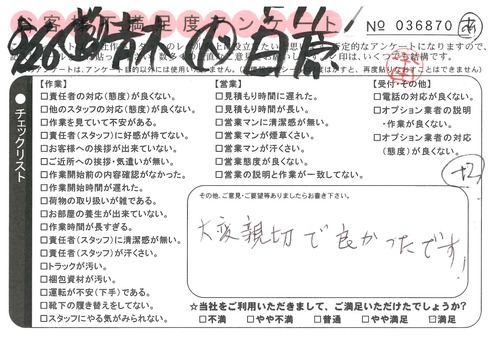 お客様不満足度アンケート
№ 036870 あ
チェックリスト
【作業】
□責任者の対応(態度)が良くない。
□他のスタッフの対応(態度)が良くない。
□作業を見ていて不安がある。
□責任者(スタッフ)に好感が持てない。
□お客様への挨拶が出来ていない。
□ご近所への挨拶・気遣いが無い。
□作業開始前の内容確認がなかった。
□作業開始時間が遅れた。
□荷物の取り扱いが雑である。
□お部屋の養生が出来ていない。
□作業時間が長すぎる。
□責任者(スタッフ)に清潔感が無い。
□責任者(スタッフ)が汗くさい。
□トラックが汚い。
□梱包資材が汚い。
□運転が不安(下手)である。
□靴下の履き替えをしてない。
□スタッフにやる気がみられない。
【営業】
□見積もり時間に遅れた。
□見積もり時間が長い。
□営業マンに清潔感が無い。
□営業マンが煙草くさい。
□営業マンが汗くさい。
□営業態度が良くない。
□営業の説明と作業が一致してない。
【受付・その他】
□電話の対応が良くない。
□オプション業者の説明
・作業が良くない。
□オプション業者の対応
(態度)が良くない。
その他、ご意見・ご要望等ありましたらお書き下さい。
大変親切で良かったです!
☆当社をご利用いただきまして、ご満足いただけたでしょうか?
□不満 □やや不満 □普通 □やや満足 ☑満足